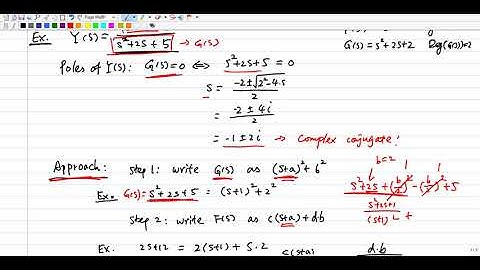 Ex. Y(s) = s²+2s+5 → G(s)
G(s) = s²+2s+2 Deg(G(s))=2
Poles of Y(s): G(s)=0 ⟺ s²+2s+5 = 0
s = (-2±√(2²-4·5))/2
= (-2 ± 4i)/2
= -1±2i → Complex conjugate!
Approach: step 1: write G(s) as (s+a)²+b²
b=2
Ex. G(s)=s²+2s+5 = (s+1)²+2²
s²+2s+(b/2)²-(b/2)²+5
s²+2s+1
(s+1)² +
step 2: write F(s) as c(s+a)+d·b
Ex. 2s+12 = 2(s+1)+5·2
c(s+a) d·b